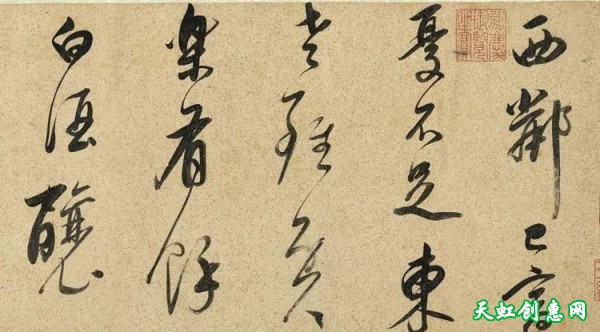 西鄰已富
憂不足東
老雖貧
樂有餘
白酒釀
天虹创惠网